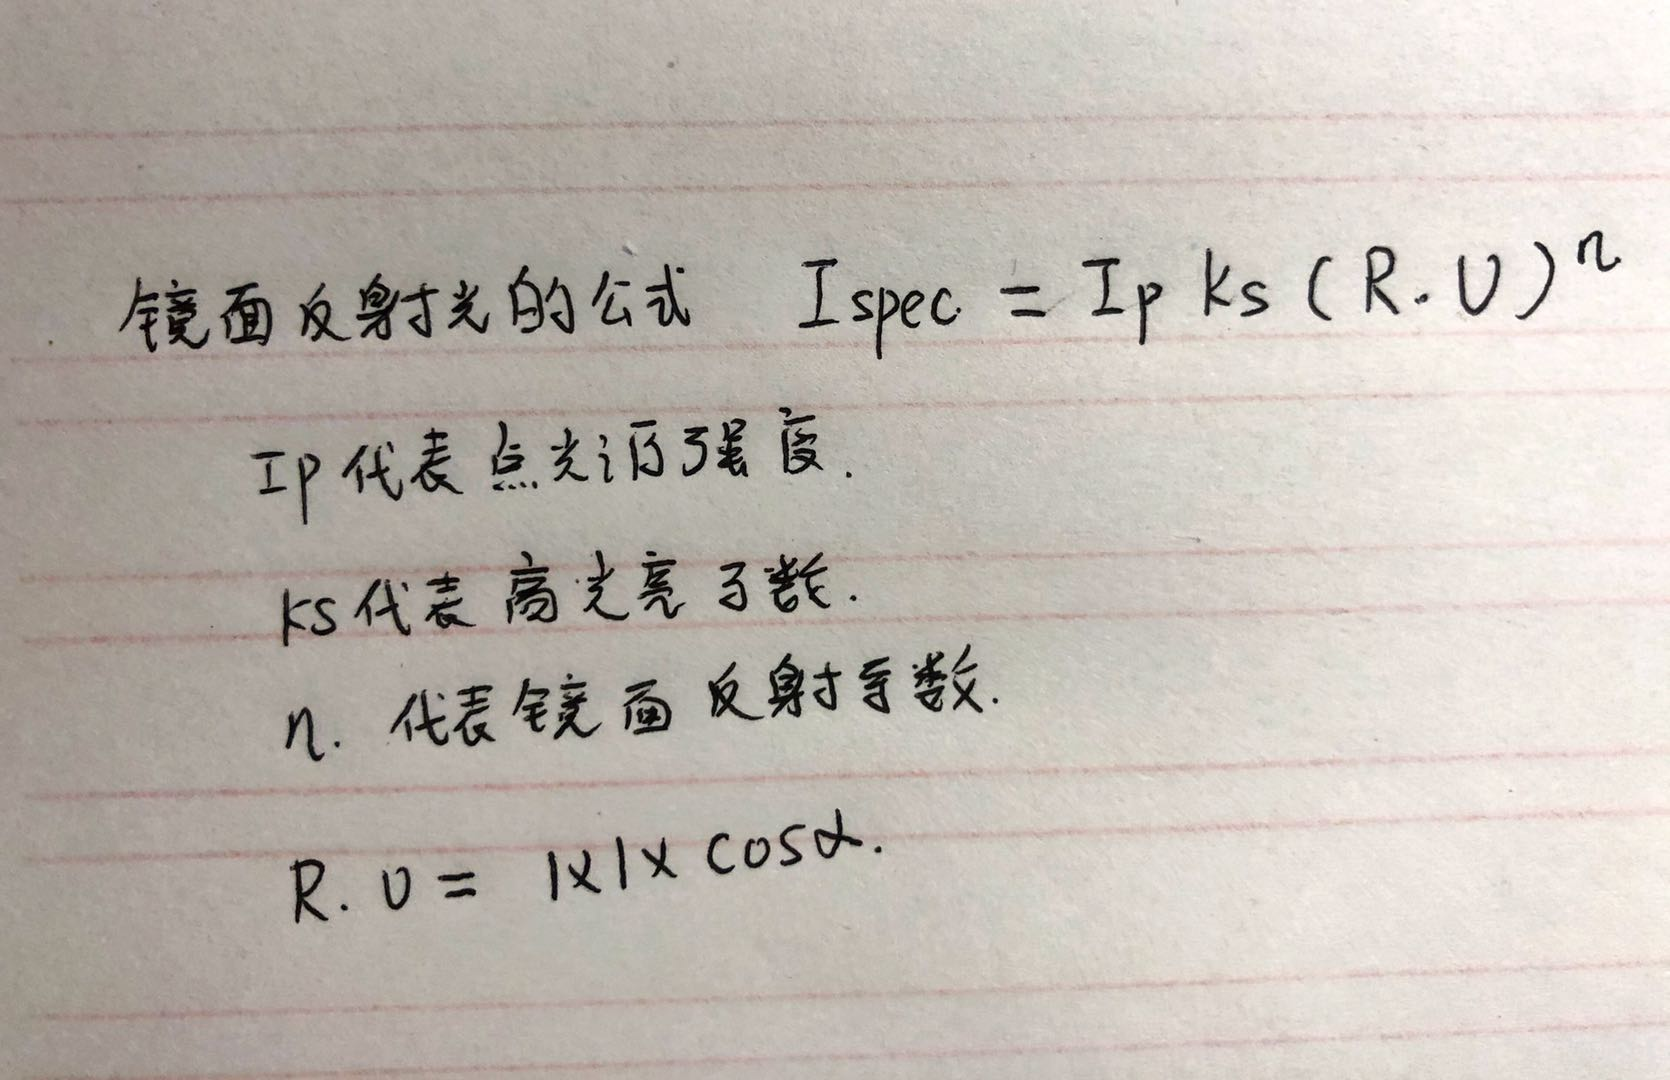 镜面反射光的公式 Ispec = Ip Ks (R.U)ⁿ
Ip代表点光源强度.
Ks代表高光亮 数.
n. 代表镜面反射 数.
R.U = 1×1× cosα.